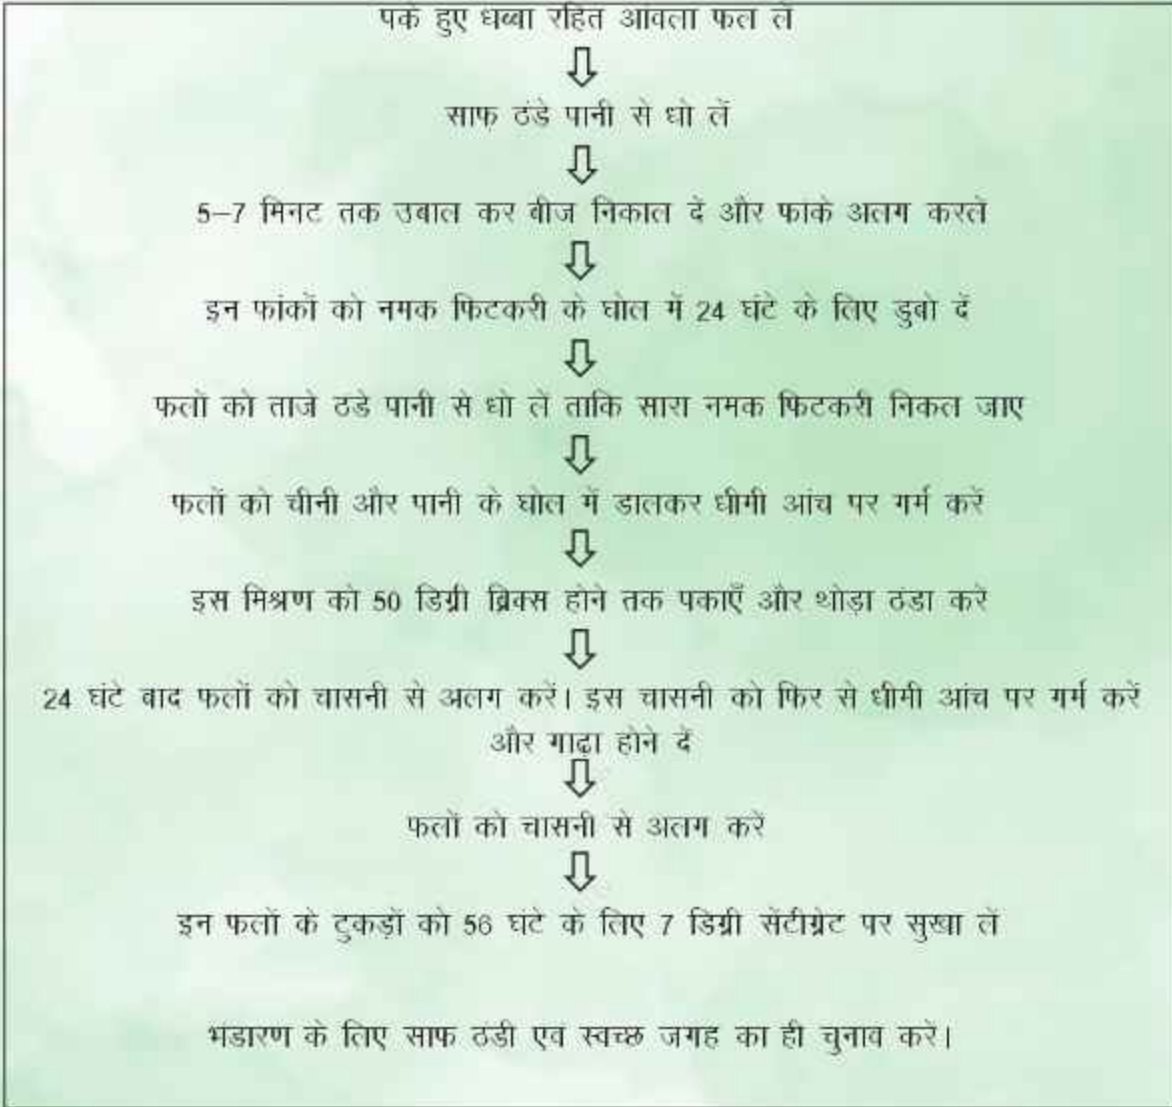 पके हुए धब्बा रहित आंवला फल लें
साफ ठंडे पानी से धो लें
5–7 मिनट तक उबाल कर बीज निकाल दें और फांके अलग करलें
इन फांकों को नमक फिटकरी के घोल में 24 घंटे के लिए डुबो दें
फलों को ताजे ठडे पानी से धो लें ताकि सारा नमक फिटकरी निकल जाए
फलों को चीनी और पानी के घोल में डालकर धीमी आंच पर गर्म करें
इस मिश्रण को 50 डिग्री ब्रिक्स होने तक पकाएँ और थोड़ा ठंडा करें
24 घंटे बाद फलों को चासनी से अलग करें। इस चासनी को फिर से धीमी आंच पर गर्म करें
और गाढ़ा होने दें
फलों को चासनी से अलग करें
इन फलों के टुकड़ों को 56 घंटे के लिए 7 डिग्री सेंटीग्रेट पर सुखा लें
भंडारण के लिए साफ ठंडी एवं स्वच्छ जगह का ही चुनाव करें।